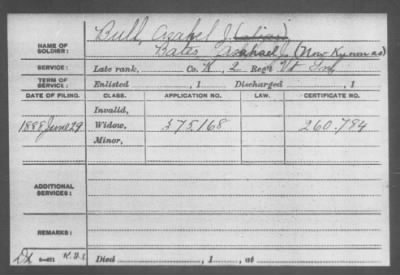 Bull, Azahel J. (alias)
NAME OF SOLDIER: Bates (Now Known as)
SERVICE: Late rank, Co. K, 2 Reg't Vt Inf
TERM OF SERVICE: Enlisted , 1 Discharged , 1
DATE OF FILING. CLASS. APPLICATION NO. LAW. CERTIFICATE NO.
Invalid,
1888 June 29 Widow, 375,168 260.794
Minor,
ADDITIONAL SERVICES:
REMARKS:
Died , 1 , at